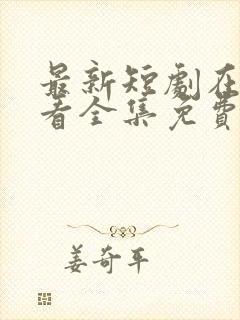 最新短劇在
看全集免費
姜奇平